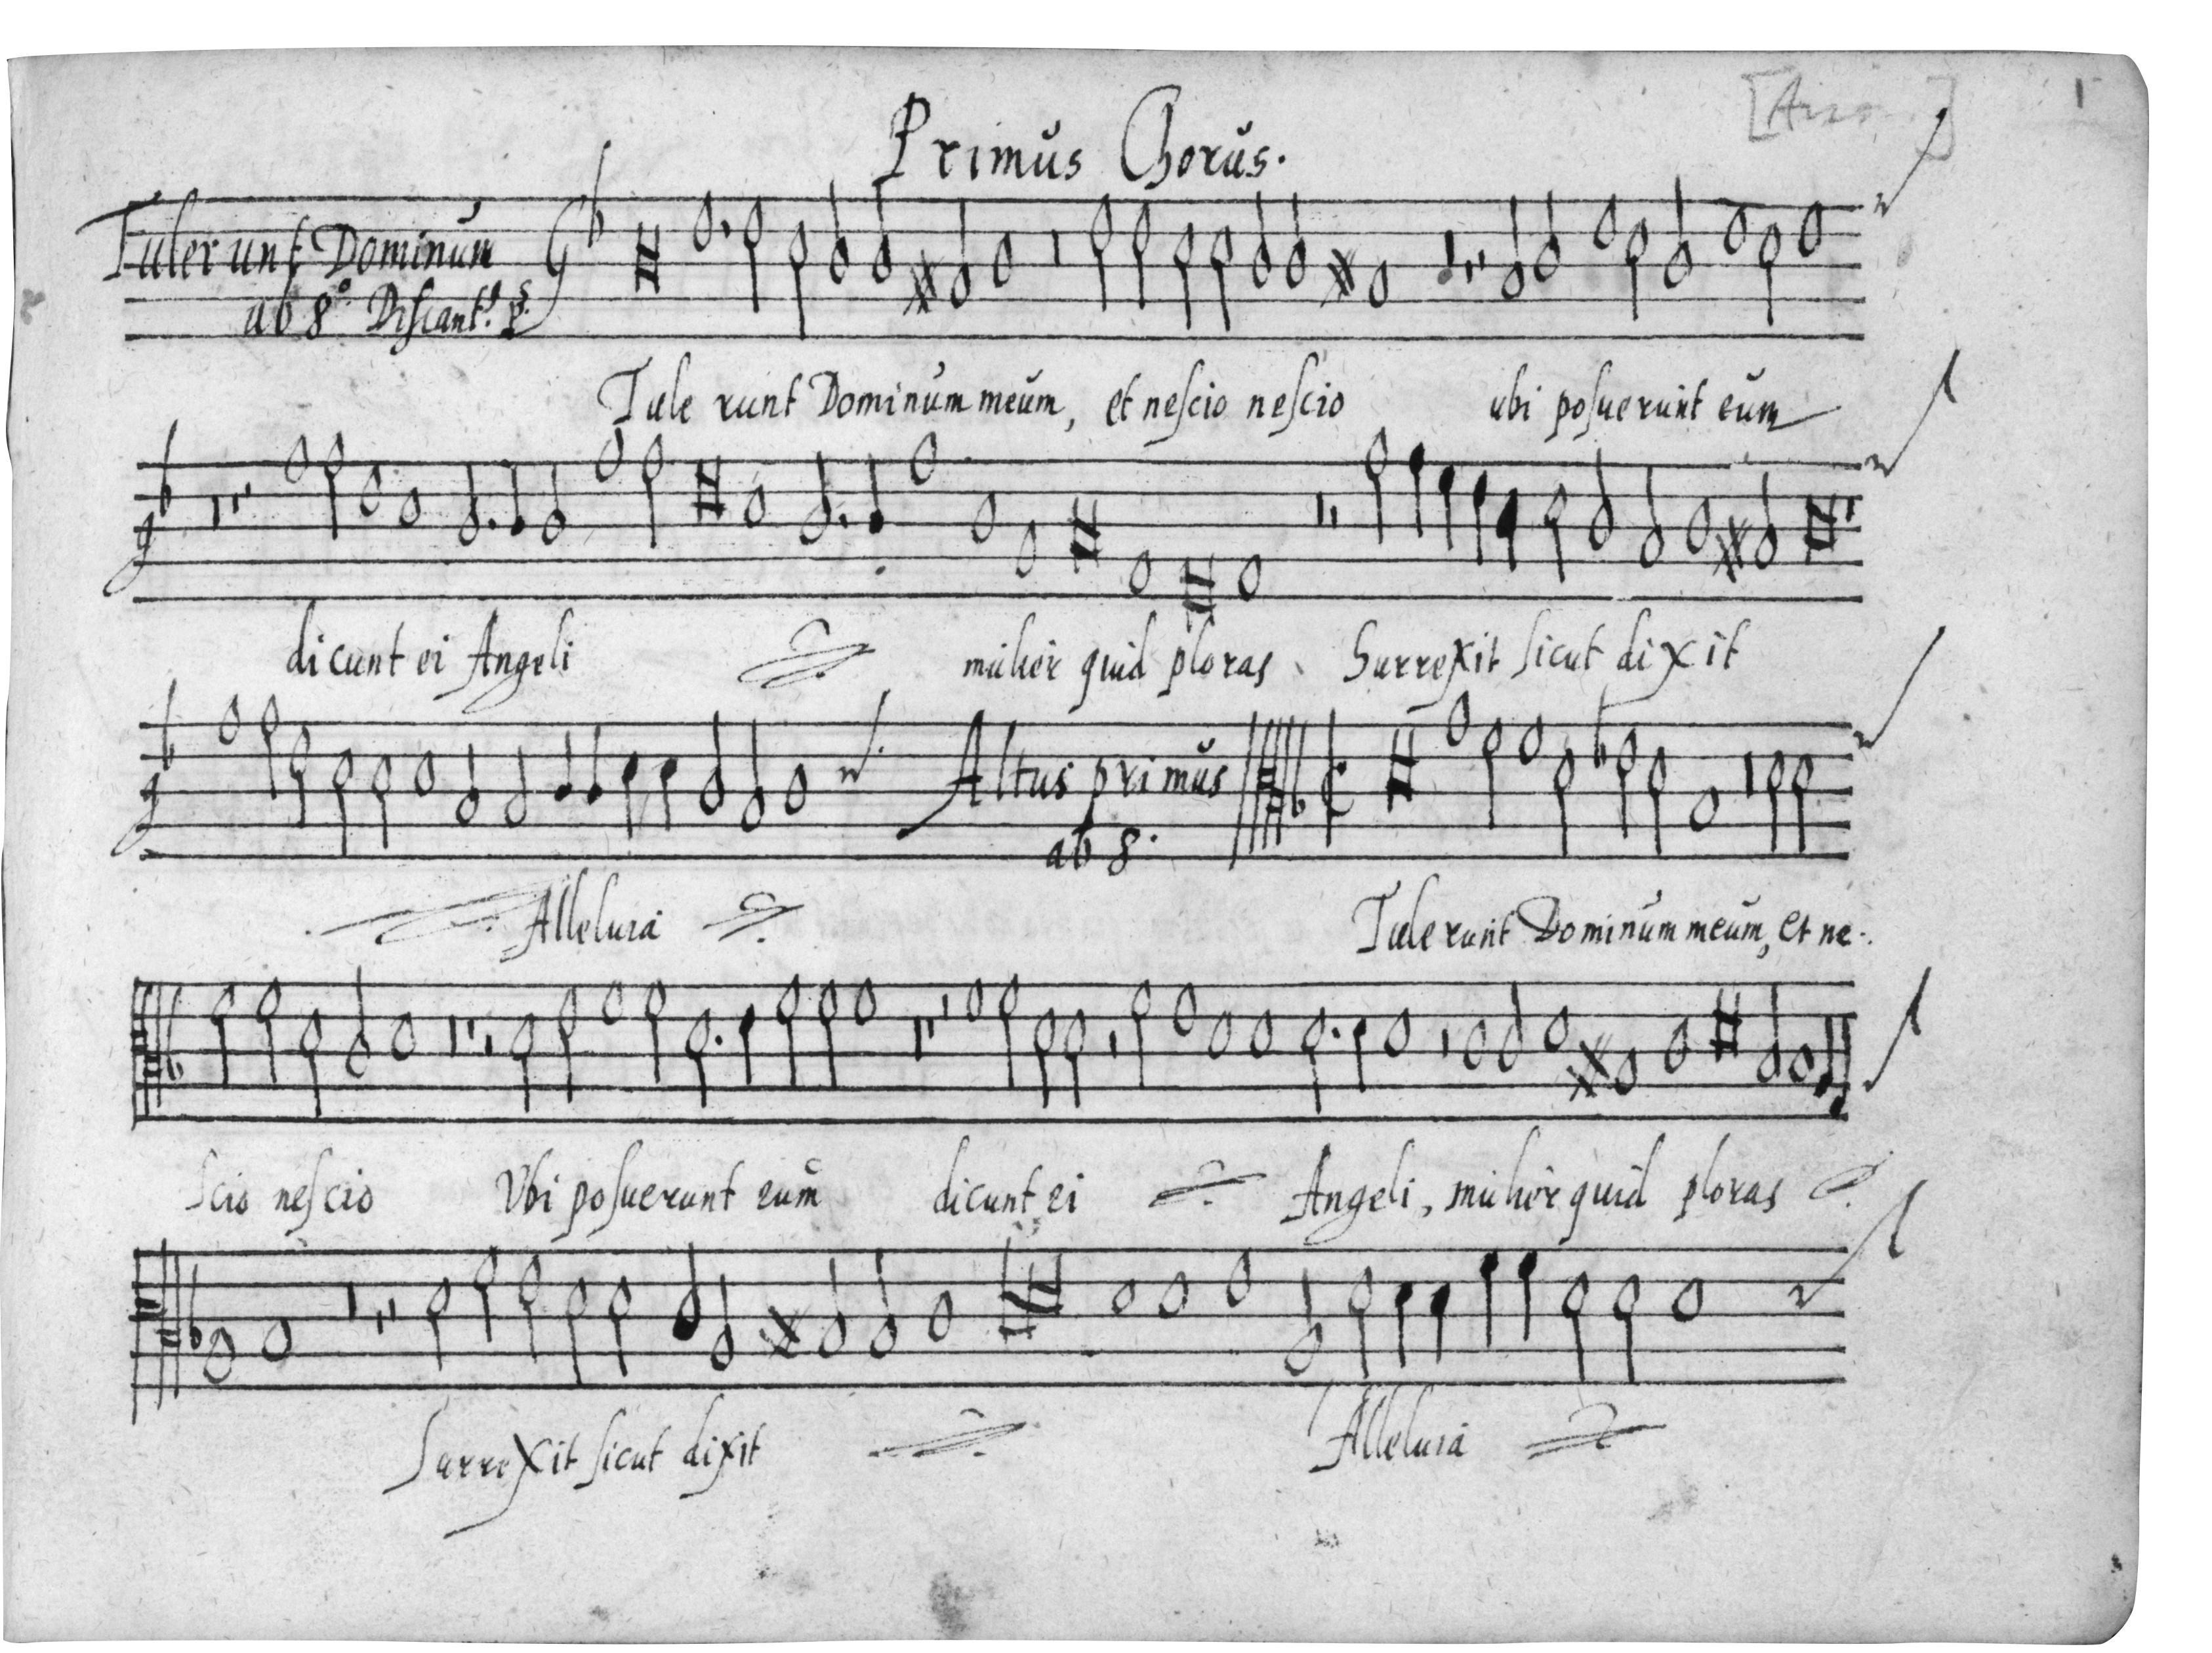 Primus Chorus.
1
Tulerunt Dominum
ab 8º Discantꝰ. ps.
Tule runt Dominum meum, et nescio nescio ubi posuerunt eum
dicunt ei Angeli mulier quid ploras Surrexit sicut dixit
Altus primus
ab 8.
Alleluia Tule runt Dominum meum, et ne..
scio nescio Vbi posuerunt eum dicunt ei Angeli, mulier quid ploras
Surrexit sicut dixit Alleluia